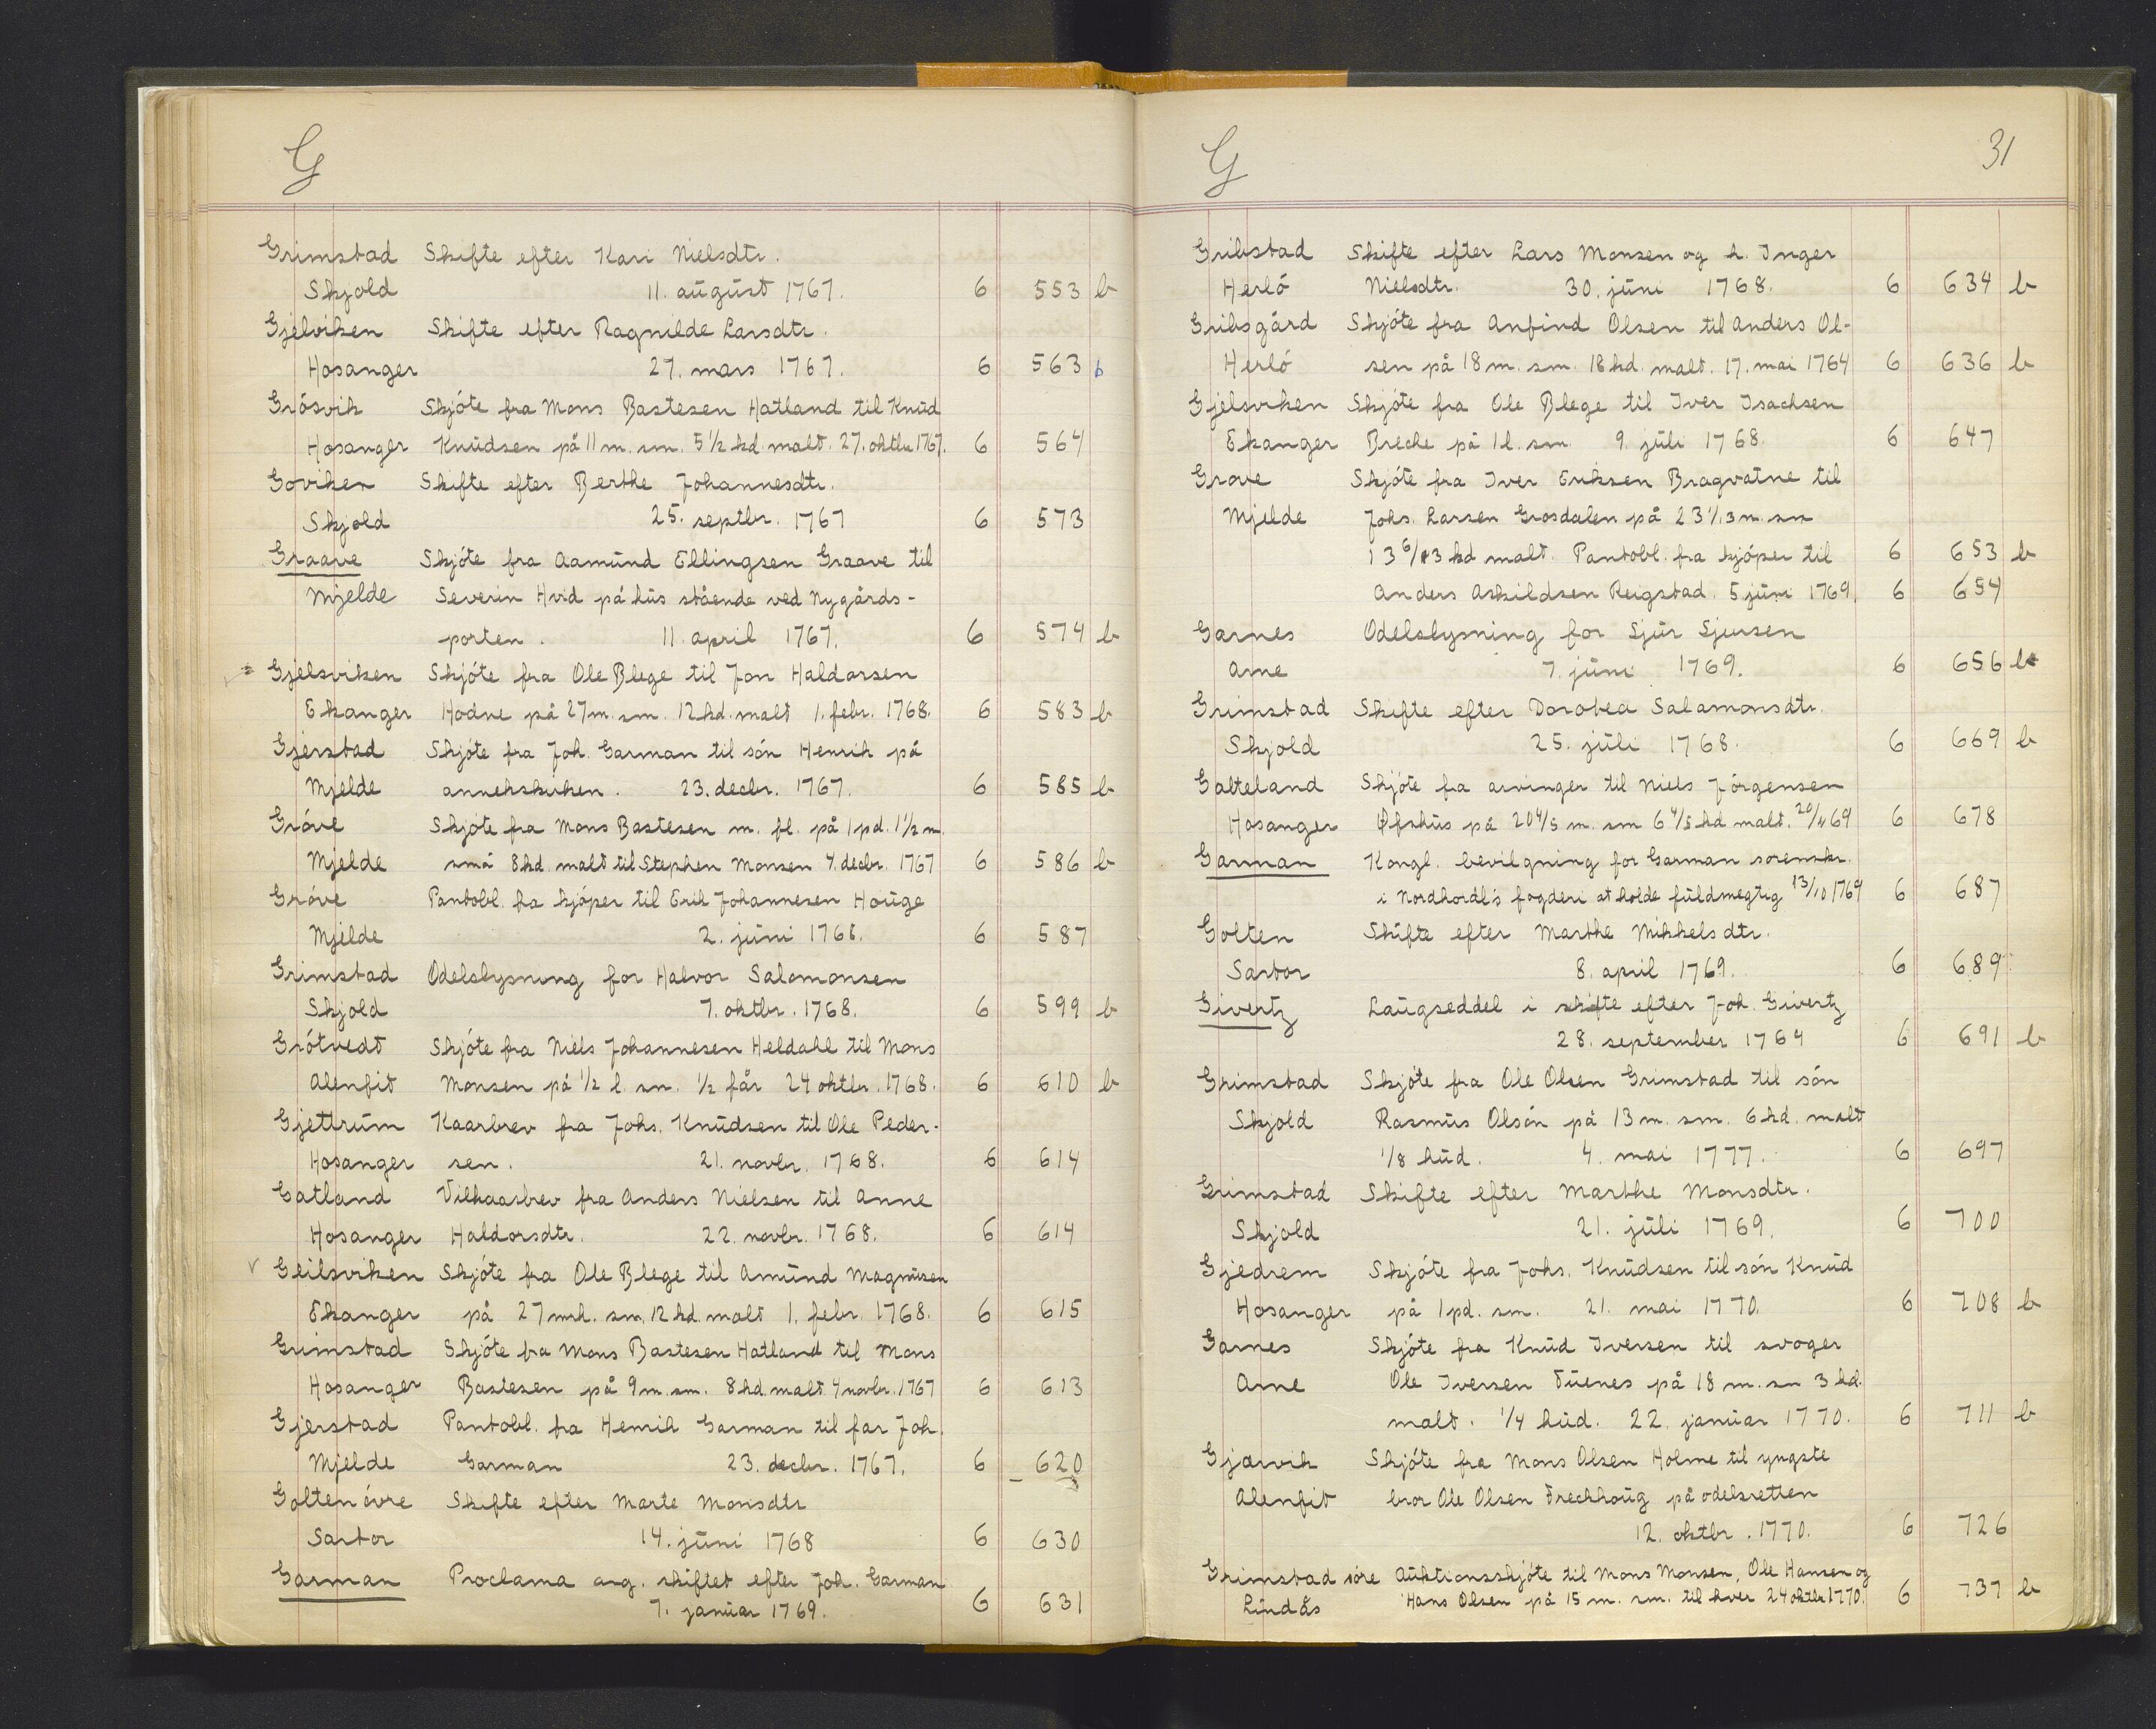 G
Grimstad Skifte efter Kari Nielsdtr.
Skjold 11. august 1767. 6 553 b
Gjelviken Skifte efter Ragnilde Larsdtr.
Hosanger 27. mars 1767. 6 563 b
Grósvik Skjóte fra Mons Bastesen Hatland til Knud
Hosanger Knudsen på 11 m. sm. 5 1/2 kd. malt. 27. oktbr 1767. 6 564
Goviken Skifte efter Berthe Johannesdtr.
Skjold 25. septbr. 1767 6 573
Graave Skjóte fra Aamund Ellingsen Graave til
Mjelde Severin Hvid på hus stående ved Nygårds-
porten. 11. april 1767. 6 574 b
Gjelsviken Skjóte fra Ole Blege til Jon Haldorsen
Ekanger Hodne på 27 m. sm. 12 kd. malt 1. febr. 1768. 6 583 b
Gjerstad Skjóte fra Joh. Garman til són Henrik på
Mjelde annekskirken. 23. decbr. 1767. 6 585 b
Gróve Skjóte fra Mons Bastesen m. fl. på 1 pd. 1 1/2 m.
Mjelde smá 8 kd. malt til Stephen Monsen 4. decbr. 1767 6 586 b
Gróve Pantobl. fra kjóper til Erik Johannesen Houge
Mjelde 2. juni 1768. 6 587
Grimstad Odelslysning for Halvor Salomonsen
Skjold 7. oktbr. 1768. 6 599 b
Grótvedt Skjóte fra Niels Johannesen Heldahl til Mons
Alenfit Monsen på 1/2 l. sm. 1/2 får 24 oktbr. 1768. 6 610 b
Gjettrum Kaarbrev fra Johs. Knudsen til Ole Peder-
Hosanger sen. 21. novbr. 1768. 6 614
Gatland Vilkaarbrev fra Anders Nielsen til Anne
Hosanger Haldorsdtr. 22. novbr. 1768. 6 614
Geilsviken Skjóte fra Ole Blege til Amund Magnusen
Ekanger på 27 mrk. sm. 12 kd. malt 1. febr. 1768. 6 615
Grimstad Skjóte fra Mons Bastesen Hatland til Mons
Hosanger Bastesen på 9 m. sm. 8 kd. malt 4 novbr. 1767 6 613
Gjerstad Pantobl. fra Henrik Garman til far Joh.
Mjelde Garman 23. decbr. 1767. 6 620
Golten óvre Skifte efter Marte Monsdtr
Sartor 14. juni 1768 6 630
Garman Proclama ang. skiftet efter Joh. Garman
7. januar 1769. 6 631
G 31
Gribstad Skifte efter Lars Monsen og h. Inger
Herló Nielsdtr. 30. juni 1768. 6 634 b
Gribsgård Skjóte fra Anfind Olsen til Anders Ol-
Herló sen på 18 m. sm. 18 kd. malt. 17. mai 1764 6 636 b
Gjelsviken Skjóte fra Ole Blege til Iver Isachsen
Ekanger Breche på 1 l. sm. 9. juli 1768. 6 647
Grove Skjóte fra Iver Eriksen Bragvatne til
Mjelde Johs. Larsen Grosdalen på 23 1/13 m. sm
13 6/13 kd malt. Pantobl. fra kjóper til 6 653 b
Anders Askildsen Reigstad. 5 juni 1769. 6 654
Garnes Odelslysning for Sjur Sjursen
Arne 7. juni 1769. 6 656 b
Grimstad Skifte efter Dorotea Salamonsdtr.
Skjold 25. juli 1768. 6 669 b
Galteland Skjóte fra arvinger til Niels Jórgensen
Hosanger Øfshus på 20 4/5 m. sm 6 4/5 kd malt. 20/11 69 6 678
Garman Kongl. bevilgning for Garman sorenskr.
i Nordhordl's fogderi at holde fuldmegtig 13/10 1769 6 687
Golten Skifte efter Marthe Mikkelsdtr.
Sartor 8. april 1769. 6 689
Givertz Laugseddel i skifte efter Joh. Givertz
28. september 1764 6 691 b
Grimstad Skjóte fra Ole Olsen Grimstad til són
Skjold Rasmus Olsón på 13 m. sm. 6 kd. malt
1/8 hud. 4. mai 1777. 6 697
Grimstad Skifte efter Marthe Monsdtr.
Skjold 21. juli 1769. 6 700
Gjedrem Skjóte fra Johs. Knudsen til són Knud
Hosanger på 1 pd. sm. 21. mai 1770. 6 708 b
Garnes Skjóte fra Knud Iversen til svoger
Arne Ole Iversen Tuenes på 18 m. sm 3 kd.
malt. 1/4 hud. 22. januar 1770. 6 711 b
Gjervik Skjóte fra Mons Olsen Holme til yngste
Alenfit bror Ole Olsen Frechhoug på odelsretten
12. oktbr. 1770. 6 726
Grimstad nóre Auktionsskjóte til Mons Monsen, Ole Hansen og
Lindås Hans Olsen på 15 m. sm. til hver 24 oktbr 1770. 6 737 b